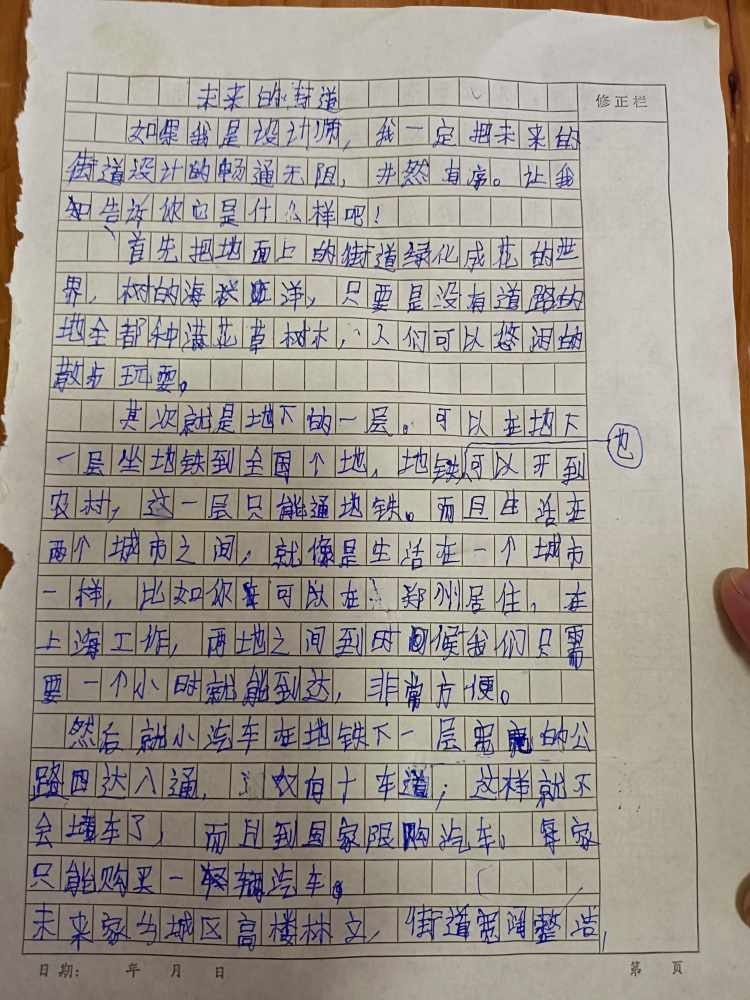 未来的街道
修正栏
如果我是设计师，我一定把未来的
街道设计的畅通无阻，井然有序。让我
告诉你它是什么样吧！
首先把地面上的街道绿化成花的世
界，树的海洋，只要是没有道路的
地全都种满花草树木，人们可以悠闲的
散步玩耍。
其次就是地下的一层。可以在地下
一层坐地铁到全国个地，地铁也可以开到
农村，这一层只能通地铁。而且生活在
两个城市之间，就像是生活在一个城市
一样，比如你可以在郑州居住，在
上海工作，两地之间到时候我们只需
要一个小时就能到达，非常方便。
然后就小汽车在地铁下一层宽的公
路四达八通，双向十车道；这样就不
会堵车了，而且到国家限购汽车。每家
只能购买一辆汽车。
未来家乡城区高楼林立，街道宽阔整洁，
日期： 年 月 日 第 页